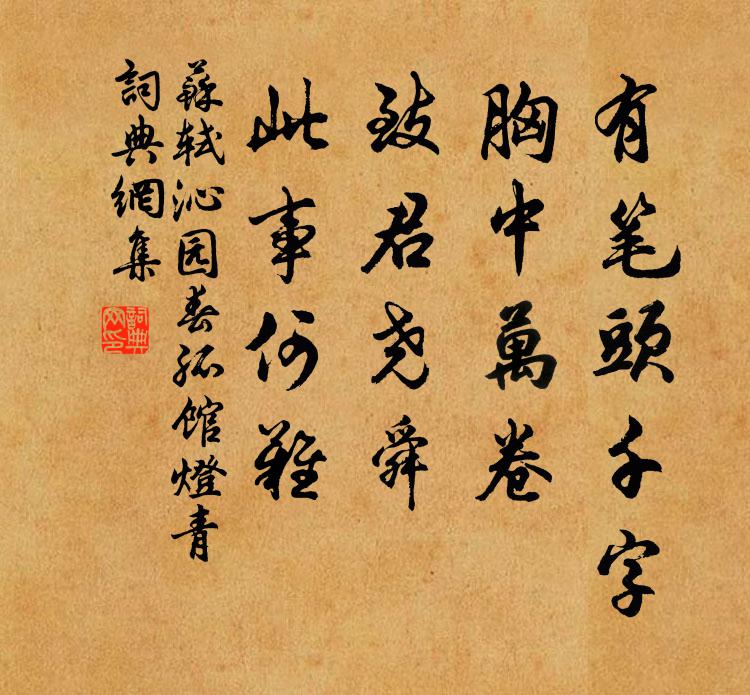 有笔頭千字
胸中萬卷
致君尧舜
此事何難
蘇軾沁园春孤馆燈青
詞典網集
詞典網印